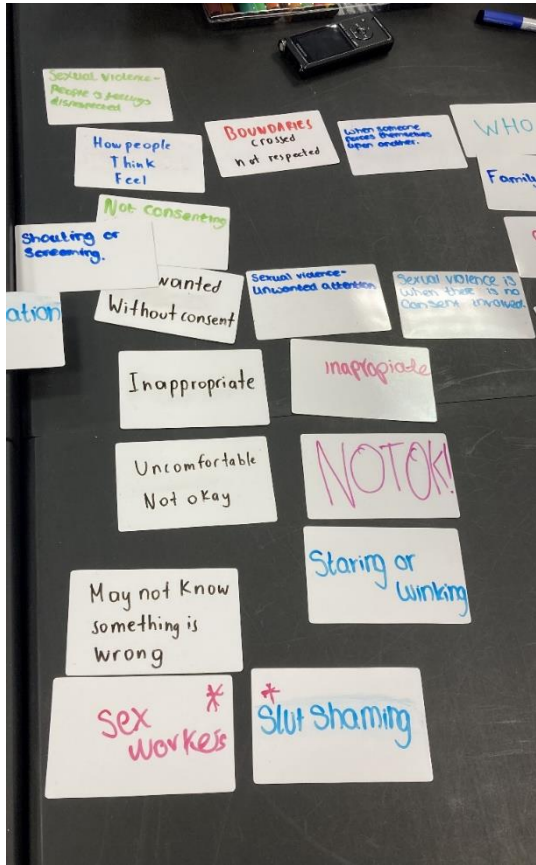 Sexual violence-
People's feelings
disrespected
How people
Think
Feel
BOUNDARIES
crossed
not respected
When someone
forces themselves
upon another.
WHO
Family
Not consenting
Shouting or
Screaming.
ation
wanted
Without consent
Sexual violence-
Unwanted attention
Sexual violence is
when there is no
consent involved.
Inappropriate
Inapropiate
Uncomfortable
Not okay
NOT OK!
Staring or
winking
May not know
something is
wrong
Sex *
workers
*
Slut shaming